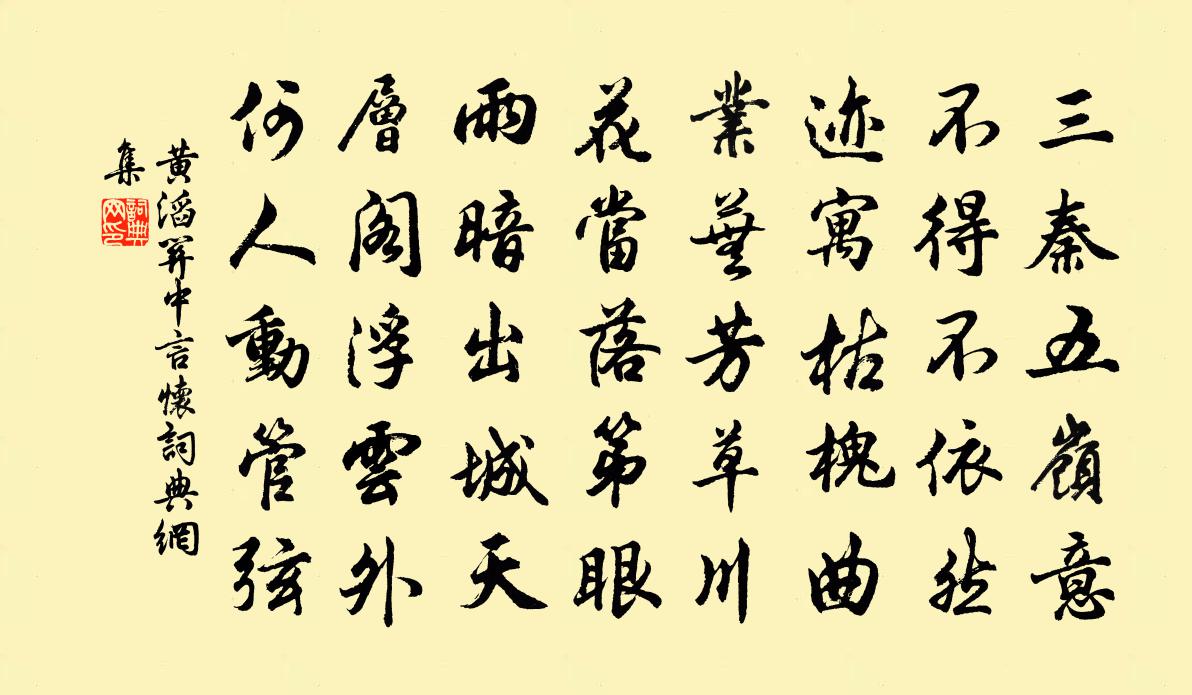 三秦五嶺意
不得不依然
迹寓枯槐曲
業蕪芳草川
花當落第眼
雨暗出城天
層閣浮雲外
何人動管弦
黃滔關中言懷詞典網
集
詞典網印